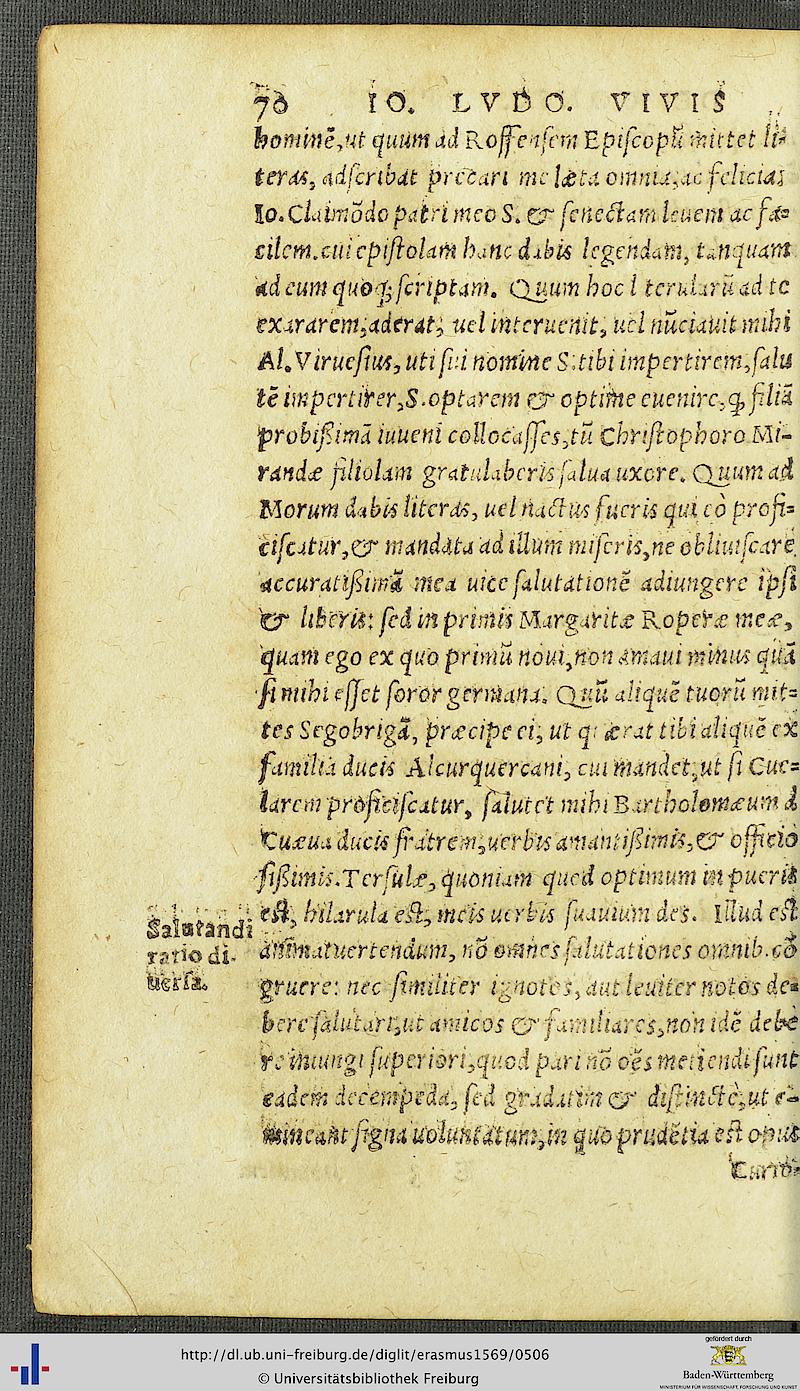 70 IO. LVDO. VIVIS
hominē, ut quum ad Roffensem Episcopū mittet li-
teras, adscribat precari me læta omnia, ac felicia:
Io. Claimōdo patri meo S. & senectam leuem ac fa-
cilem. cui epistolam hanc dabis legendam, tanquam
ad eum quoq; scriptam. Quum hoc l terularū ad te
exararem, aderat, uel interuenit, uel nūciauit mihi
Al. Viruesius, uti sui nomine S. tibi impertirem, salu
tē impertirer, S. optarem & optime euenire, q̄ filiā
probißimā iuueni collocasses, tū Christophoro Mi-
randæ filiolam gratulaberis salua uxore. Quum ad
Morum dabis literas, uel nactus fueris qui eò profi-
ciscatur, & mandata ad illum miseris, ne obliuiscare
accuratißimā mea uice salutationē adiungere ipsi
& liberis: sed in primis Margaritæ Roperæ meæ,
quam ego ex quo primū noui, non amaui minus quā
si mihi esset soror germana. Quū aliquē tuorū mit-
tes Segobrigā, præcipe ei, ut quærat tibi aliquē ex
familia ducis Alcurquercani, cui mandet, ut si Cue-
larem proficiscatur, salutet mihi Bartholomæum à
Cuæua ducis fratrem, uerbis amantißimis, & officio
sißimis. Tersulæ, quoniam quod optimum in pueris
est, hilarula est, meis uerbis suauium des. Illud est
animaduertendum, nō omnes salutationes omnib. cō
gruere: nec similiter ignotos, aut leuiter notos de-
bere salutari, ut amicos & familiares, non idē debe
re iniungi superiori, quod pari nō oēs metiendi sunt
eadem decempeda, sed gradatim & distinctè, ut e-
mineant signa uoluntatum, in quo prudētia est opus
Salutandi
ratio di-
uersa.
http://dl.ub.uni-freiburg.de/diglit/erasmus1569/0506
© Universitätsbibliothek Freiburg
gefördert durch
Baden-Württemberg
MINISTERIUM FÜR WISSENSCHAFT, FORSCHUNG UND KUNST